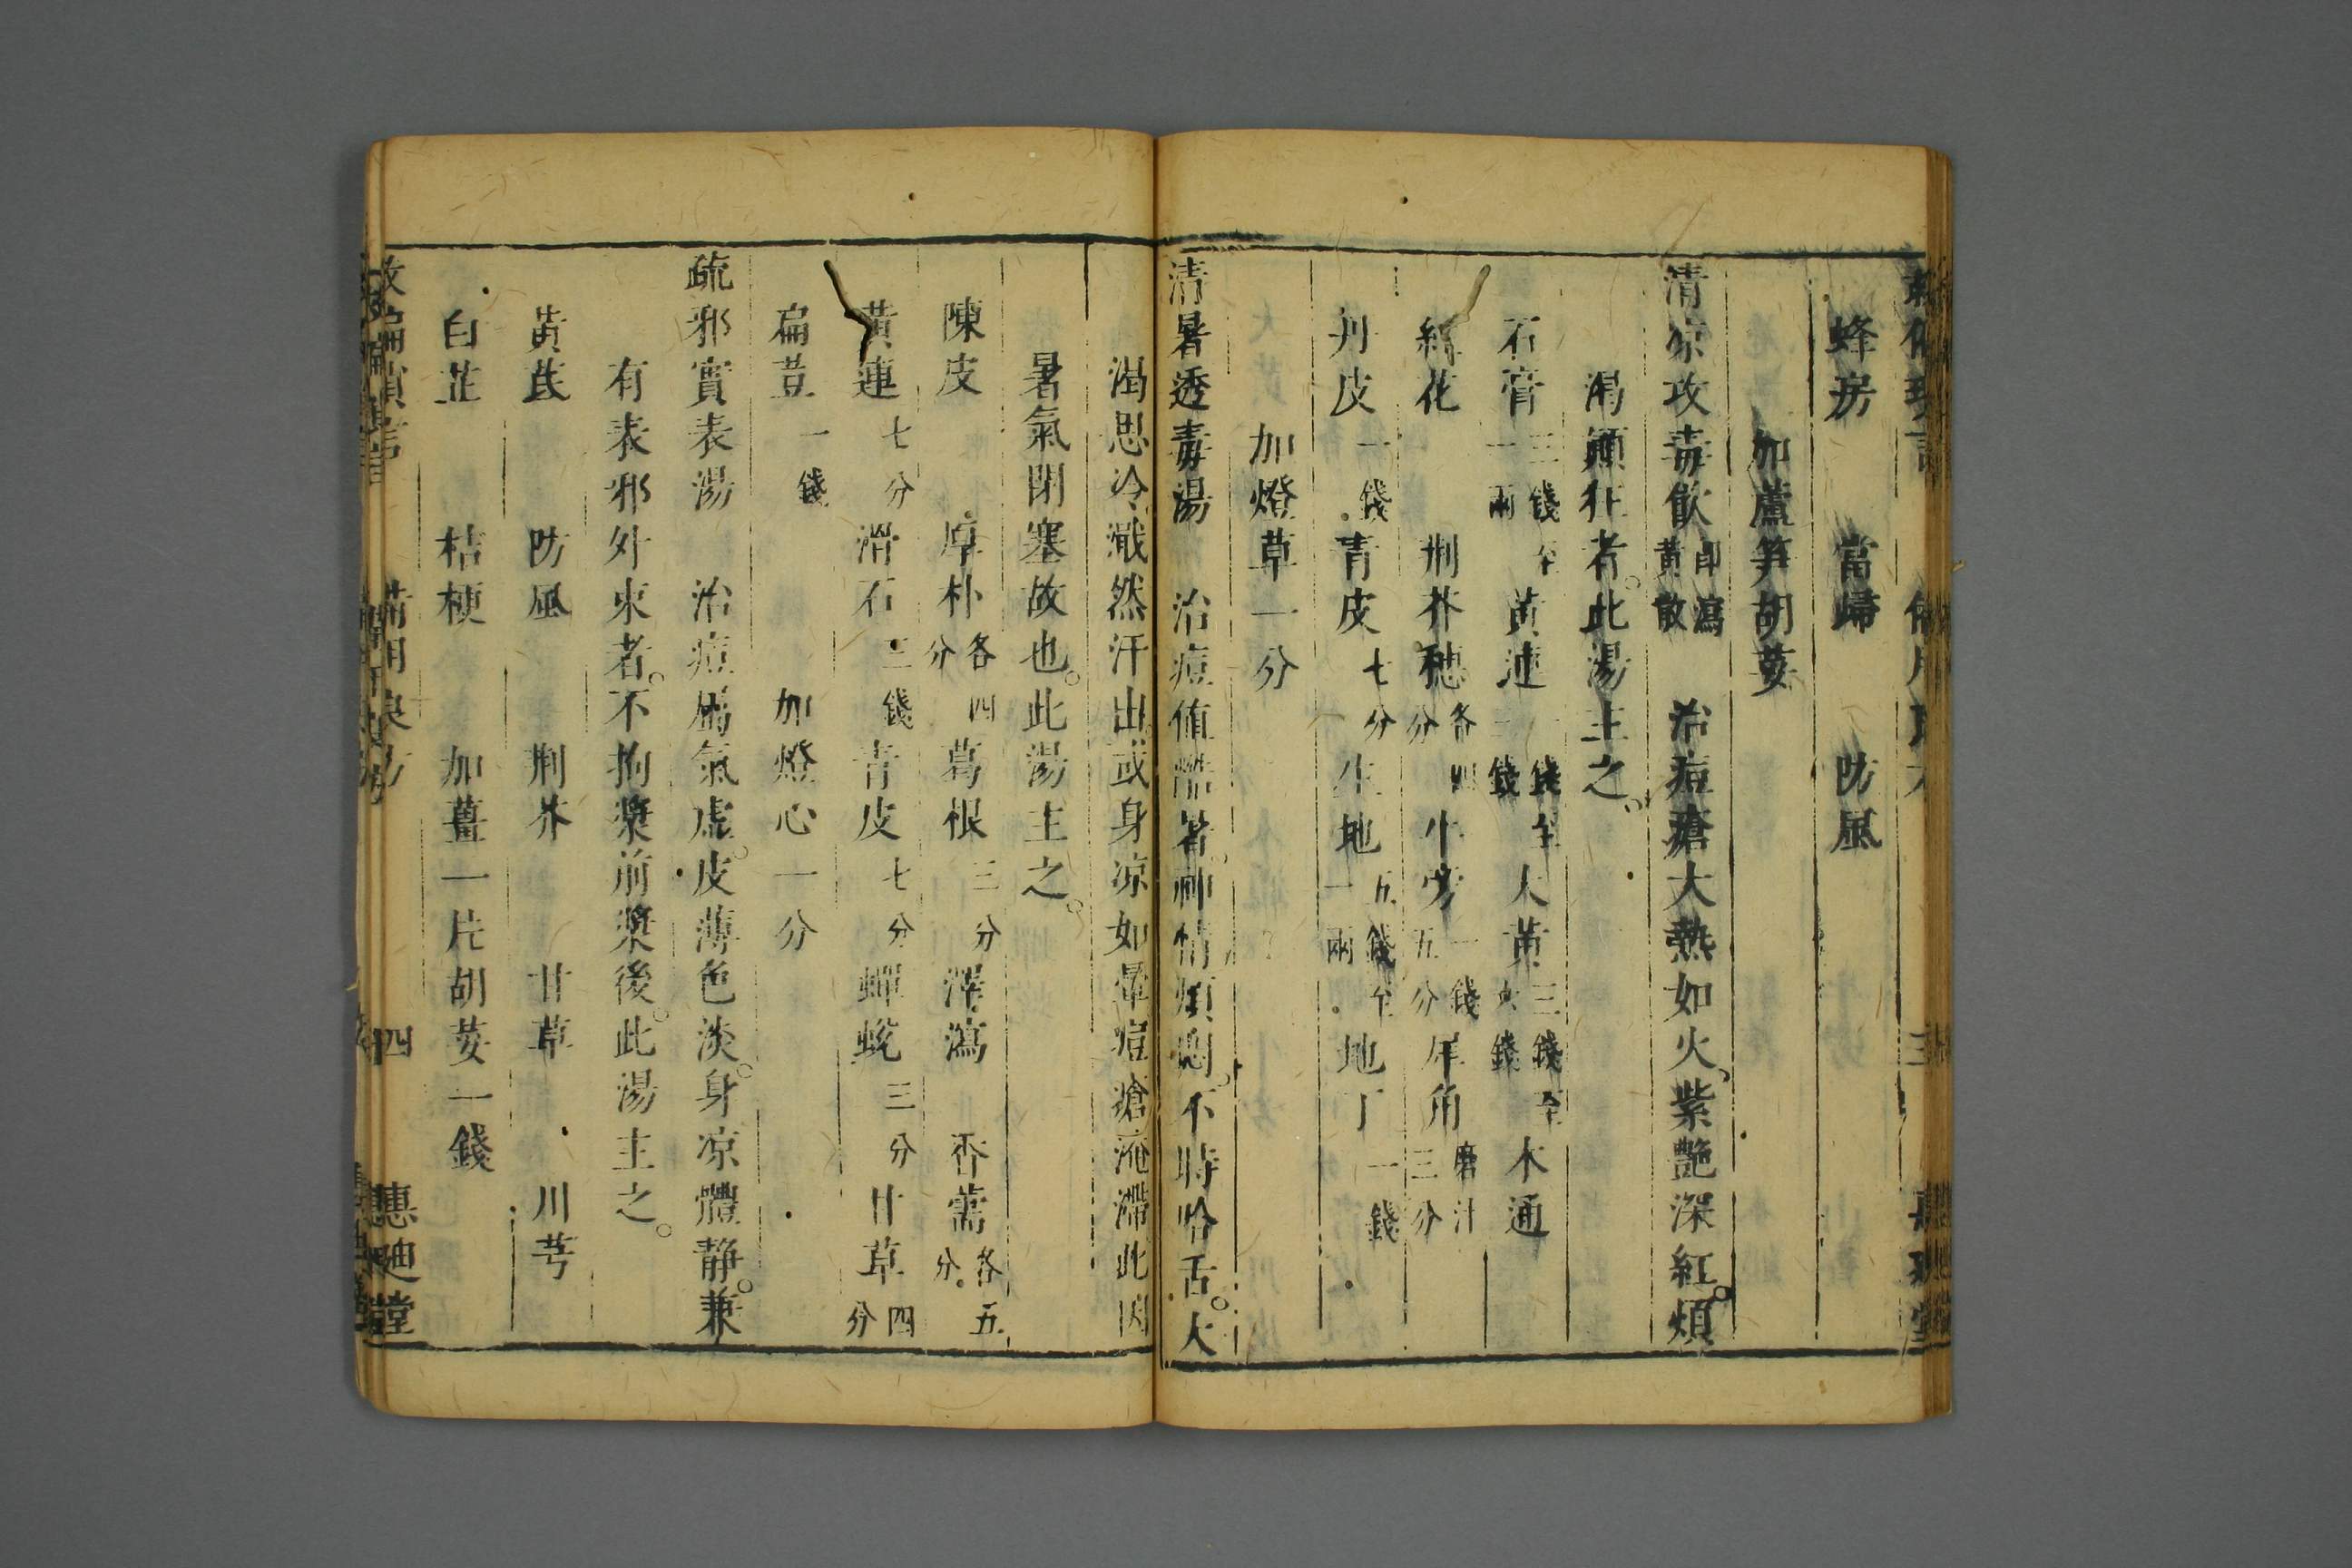 蜂房 當歸 防風
加蘆笋胡荽
清凉攻毒飲 即瀉黄散 治痘瘡大熱如火、紫艷深紅。煩
渴顚狂者。此湯主之。
石膏 三錢至一兩 黄連 一錢至二錢 大黄 三錢至六錢 木通
紅花 荆芥穂 各四分 牛旁 一錢五分 犀角 磨汁三分
丹皮 一錢 青皮 七分 生地 五錢至一兩 地丁 一錢
加燈草一分
清暑透毒湯 治痘値酷暑。神情煩悶。不時哈舌。大
渴思冷濈然汗出或身凉如暈痘瘡淹滯此因
暑氣閉塞故也。此湯主之。
陳皮 厚朴 各四分 葛根 三分 澤瀉 香薷 各五分
黃連 七分 滑石 三錢 青皮 七分 蟬蛻 三分 甘草 四分
扁荳 一錢 加燈心一分
疏邪實表湯 治痘屬氣虛。皮薄色淡。身凉體静。兼
有表邪外束者。不拘漿前漿後。此湯主之。
黄芪 防風 荆芥 甘草 川芎
白芷 桔梗 加薑一片胡荽一錢
救偏瑣言 備用良方 四 惠迪堂